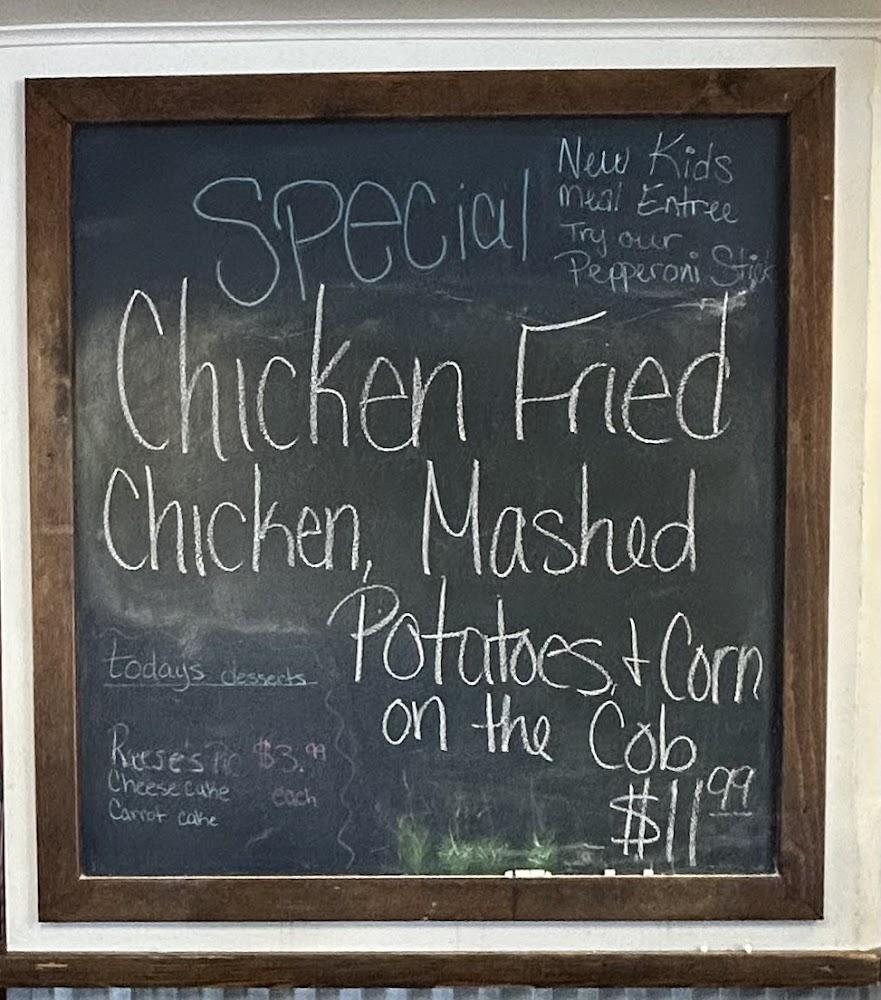 Special
New Kids
Meal Entree
Try our
Pepperoni Stick
Chicken Fried
Chicken, Mashed
Potatoes, + Corn
on the Cob
$11.99
todays desserts
Reese's Pie $3.99
Cheese cake each
Carrot cake